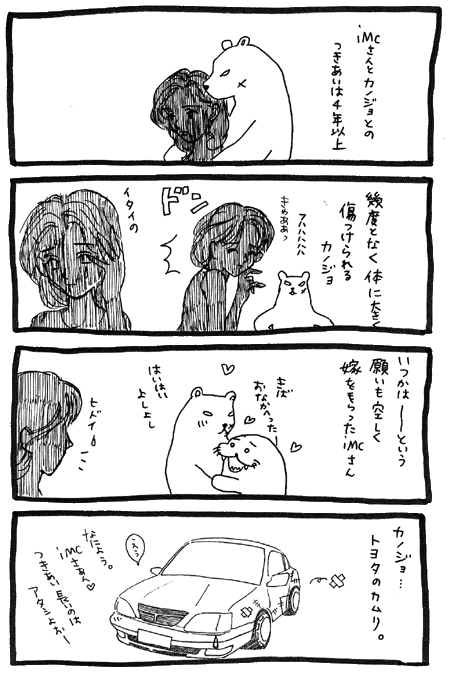 iMCさんとカノジョとの
つきあいは4年以上
幾度となく体に大きく
傷つけられる
カノジョ
アハハハハハ
きゃああっ
ドン
イタイの
いつかは——という
願いも空しく
嫁をもらったiMCさん
きば
おなかへったー
はいはい
よしよし
ヒドイ!
カノジョ…
トヨタのカムリ。
なによう。
iMCさぁん♡
つきあい長いのは
アタシよぉー